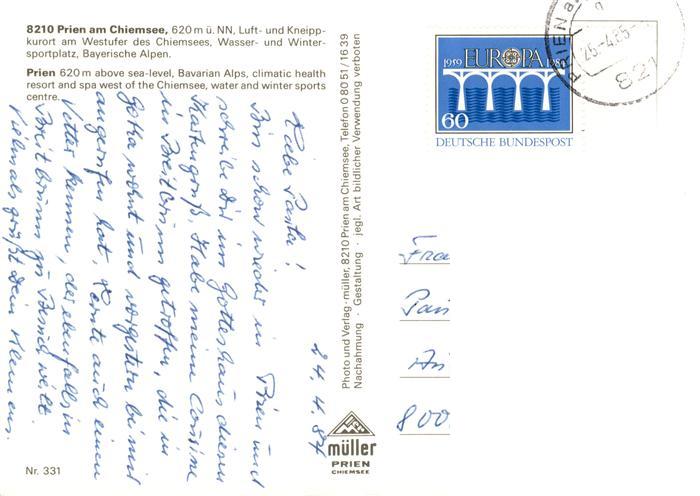 8210 Prien am Chiemsee, 620 m ü. NN, Luft- und Kneipp-
kurort am Westufer des Chiemsees, Wasser- und Winter-
sportplatz, Bayerische Alpen.
Prien 620 m above sea-level, Bavarian Alps, climatic health
resort and spa west of the Chiemsee, water and winter sports
centre.
24.4.84
Liebe !
Bin schon wieder in Prien und
schreibe Dir im Gotteshaus diesen
Kartengruß. Habe meine Cousine
in Breitbrunn getroffen, die in
Gotha wohnt und vorgestern bei mir
angerufen hat. Lernte auch einen
Vetter kennen, der ebenfalls in
Breitbrunn zu Besuch weilt.
Vielmals grüßt Dein Klemens.
Nr. 331
Photo und Verlag · müller, 8210 Prien am Chiemsee, Telefon 0 80 51 / 16 39
Nachahmung · Gestaltung · jegl. Art bildlicher Verwendung verboten
müller
PRIEN
CHIEMSEE
1959 EUROPA 1984
60
DEUTSCHE BUNDESPOST
PRIEN a
821
Frau
800